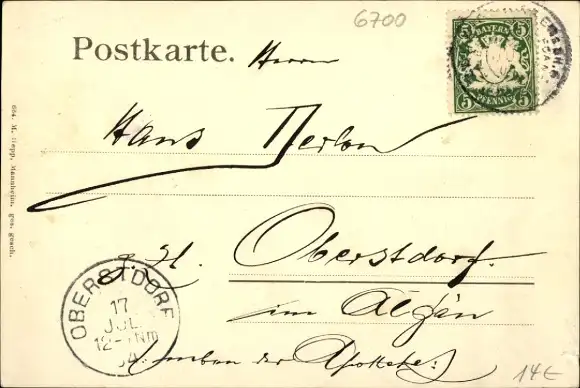 6700
Postkarte. Herrn
5 BAYERN 5
5 PFENNIG 5
Hans
z. Zt. Oberstdorf.
im Algäu
(neben der Apotheke)
OBERSTDORF
17
JUL
12-1 Nm
04
664. H. Hepp, Mannheim, ges. gesch.
14€